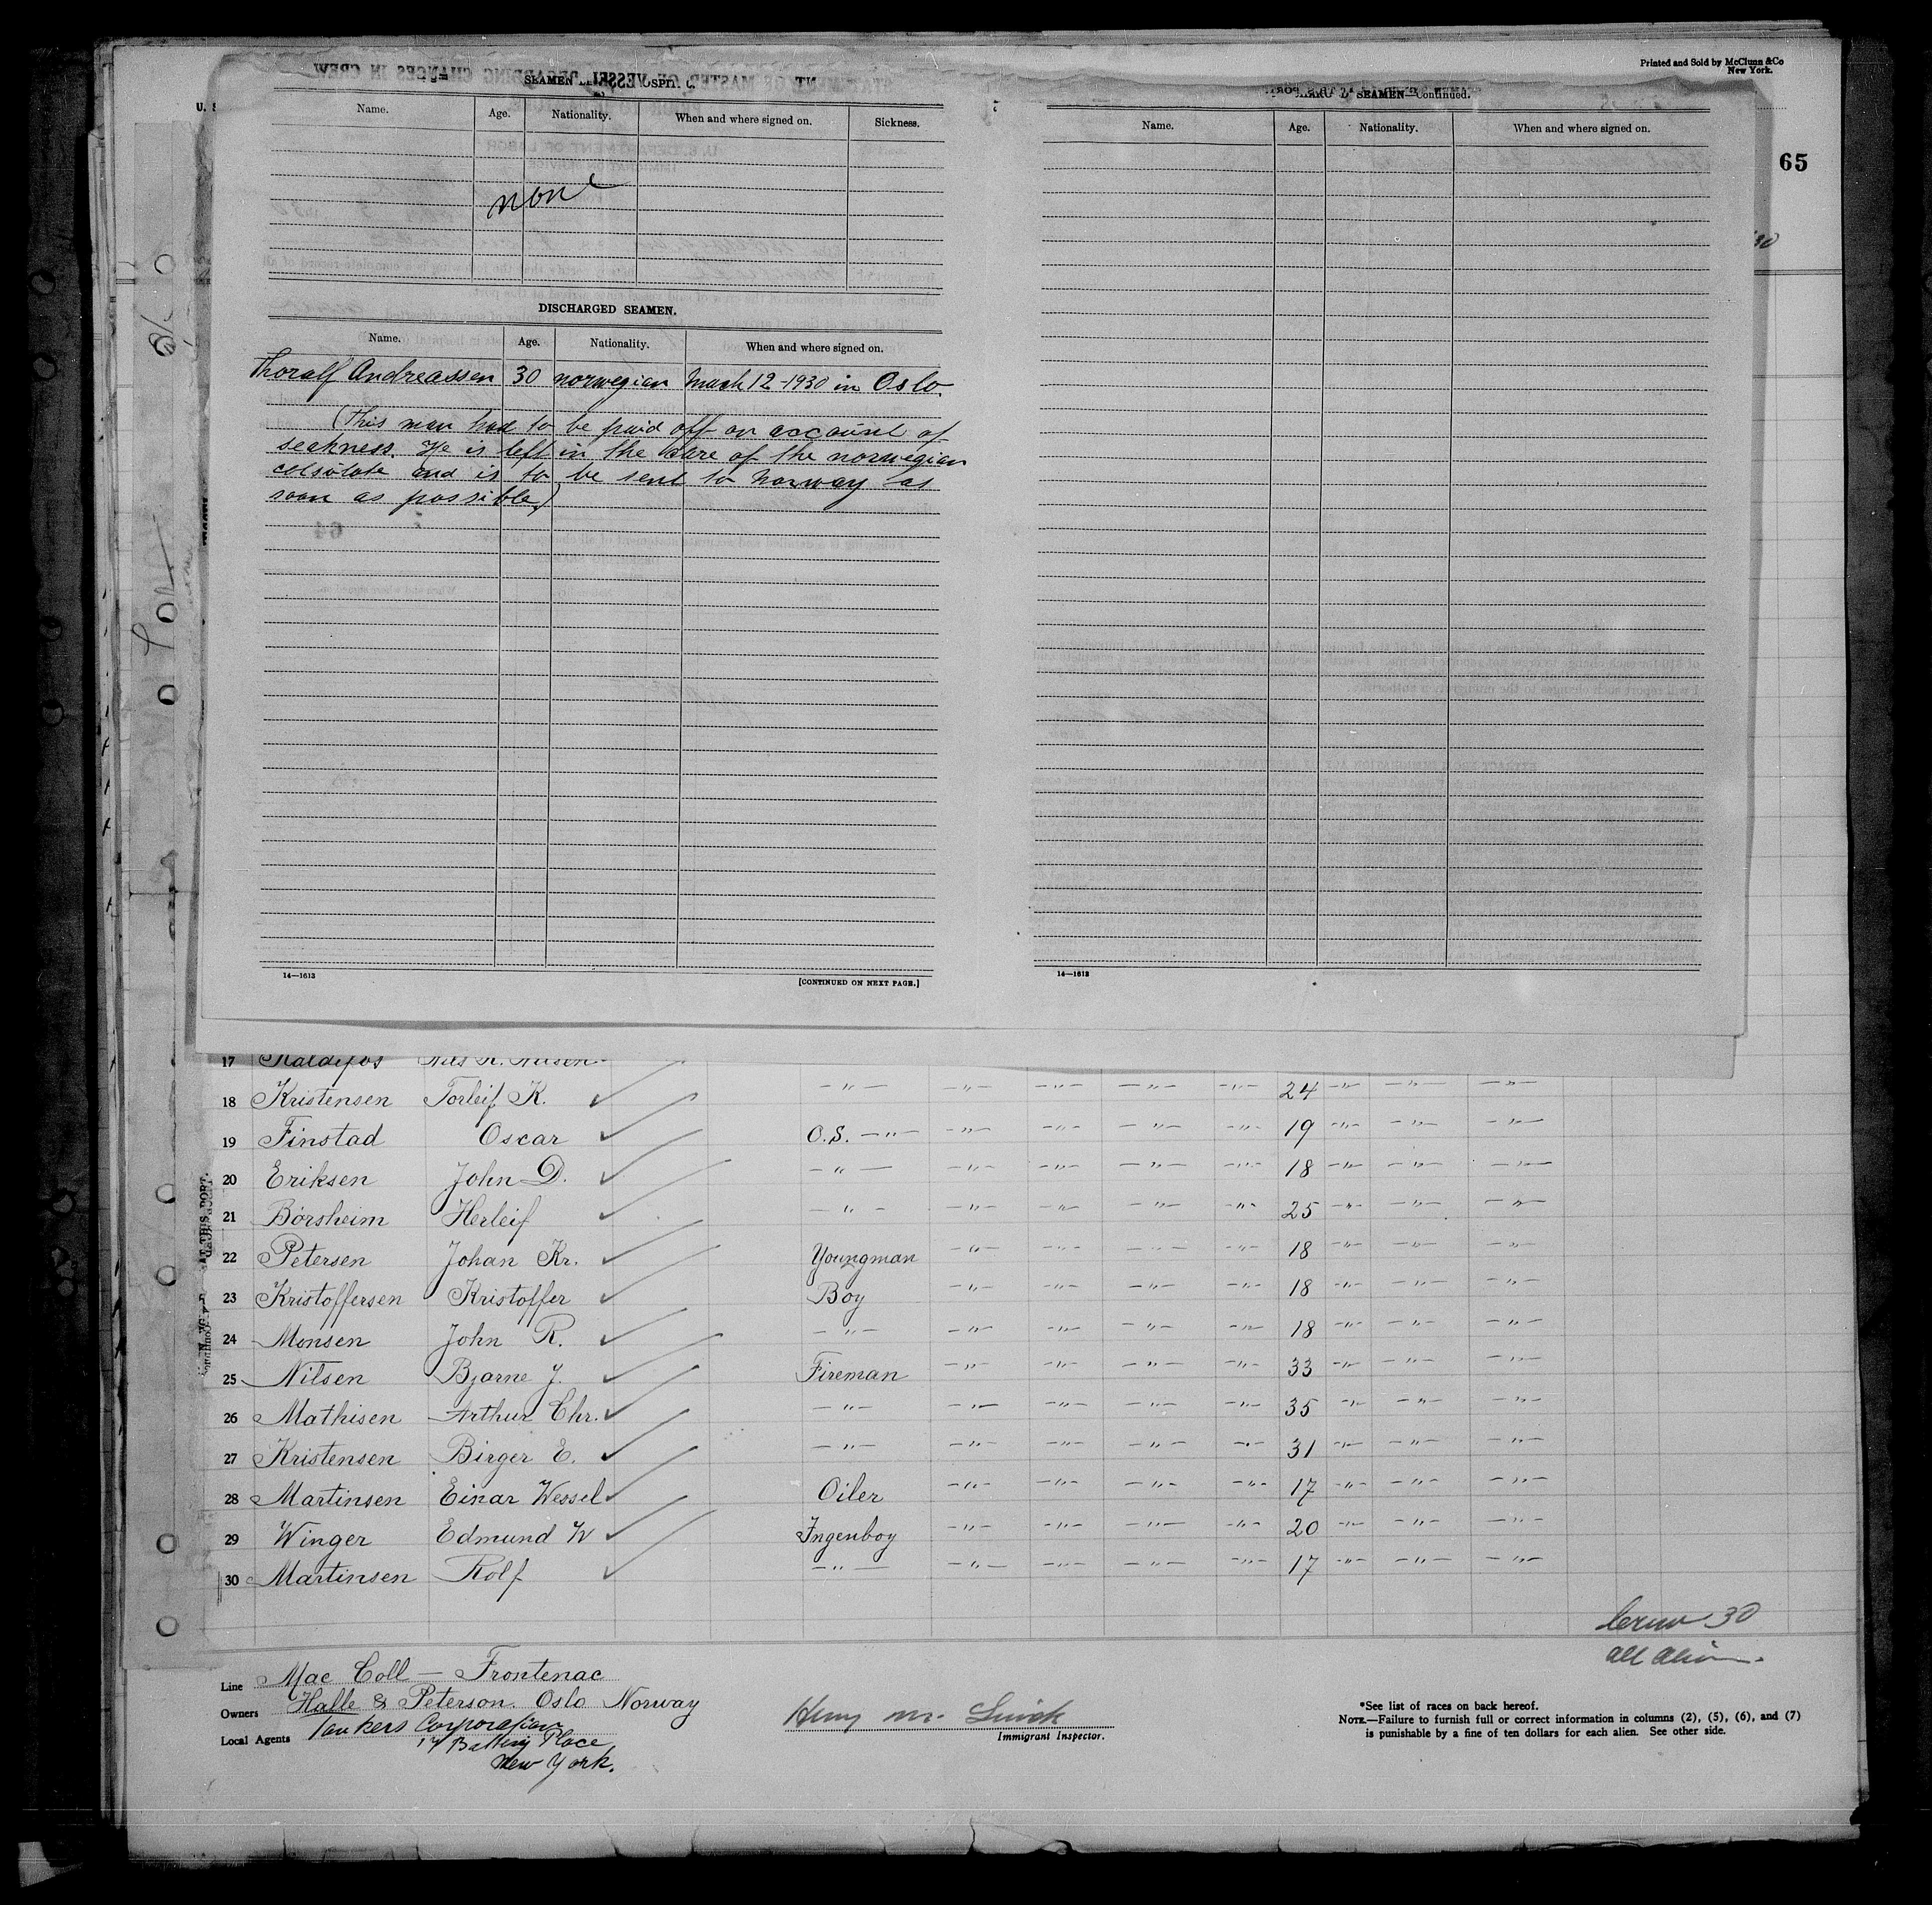 Printed and Sold by McClunn & Co
New York.
65
U. S
SEAMEN
Name. Age. Nationality. When and where signed on. Sickness.
none
DISCHARGED SEAMEN.
Name. Age. Nationality. When and where signed on.
Thoralf Andreassen 30 norwegian March 12-1930 in Oslo.
(This man had to be paid off on account of
seekness. He is left in the care of the norwegian
colsulate and is to be sent to Norway as
soon as possible)
14—1613 [CONTINUED ON NEXT PAGE.]
SEAMEN—Continued.
Name. Age. Nationality. When and where signed on.
14—1613
17
18 Kristensen Torleif K. —"— —"— —"— —"— —"— 24 —"— —"— —"—
19 Finstad Oscar O.S. —"— —"— —"— —"— —"— 19 —"— —"— —"—
20 Eriksen John D. —"— —"— —"— —"— —"— 18 —"— —"— —"—
21 Börsheim Herleif —"— —"— —"— —"— —"— 25 —"— —"— —"—
22 Petersen Johan Kr. Youngman —"— —"— —"— —"— 18 —"— —"— —"—
23 Kristoffersen Kristoffer Boy —"— —"— —"— —"— 18 —"— —"— —"—
24 Monsen John R. —"— —"— —"— —"— —"— 18 —"— —"— —"—
25 Nilsen Bjarne J. Fireman —"— —"— —"— —"— 33 —"— —"— —"—
26 Mathisen Arthur Chr. —"— —"— —"— —"— —"— 35 —"— —"— —"—
27 Kristensen Birger E. —"— —"— —"— —"— —"— 31 —"— —"— —"—
28 Martinsen Einar Wessel Oiler —"— —"— —"— —"— 17 —"— —"— —"—
29 Winger Edmund W Ingenboy —"— —"— —"— —"— 20 —"— —"— —"—
30 Martinsen Rolf —"— —"— —"— —"— —"— 17 —"— —"— —"—
Crew 30
all alien.
Line Mac Coll — Frontenac
Owners Halle & Peterson. Oslo Norway
Local Agents Tankers Corporation
17 Battery Place
New York.
Henry M.
Immigrant Inspector.
*See list of races on back hereof.
NOTE.—Failure to furnish full or correct information in columns (2), (5), (6), and (7)
is punishable by a fine of ten dollars for each alien. See other side.